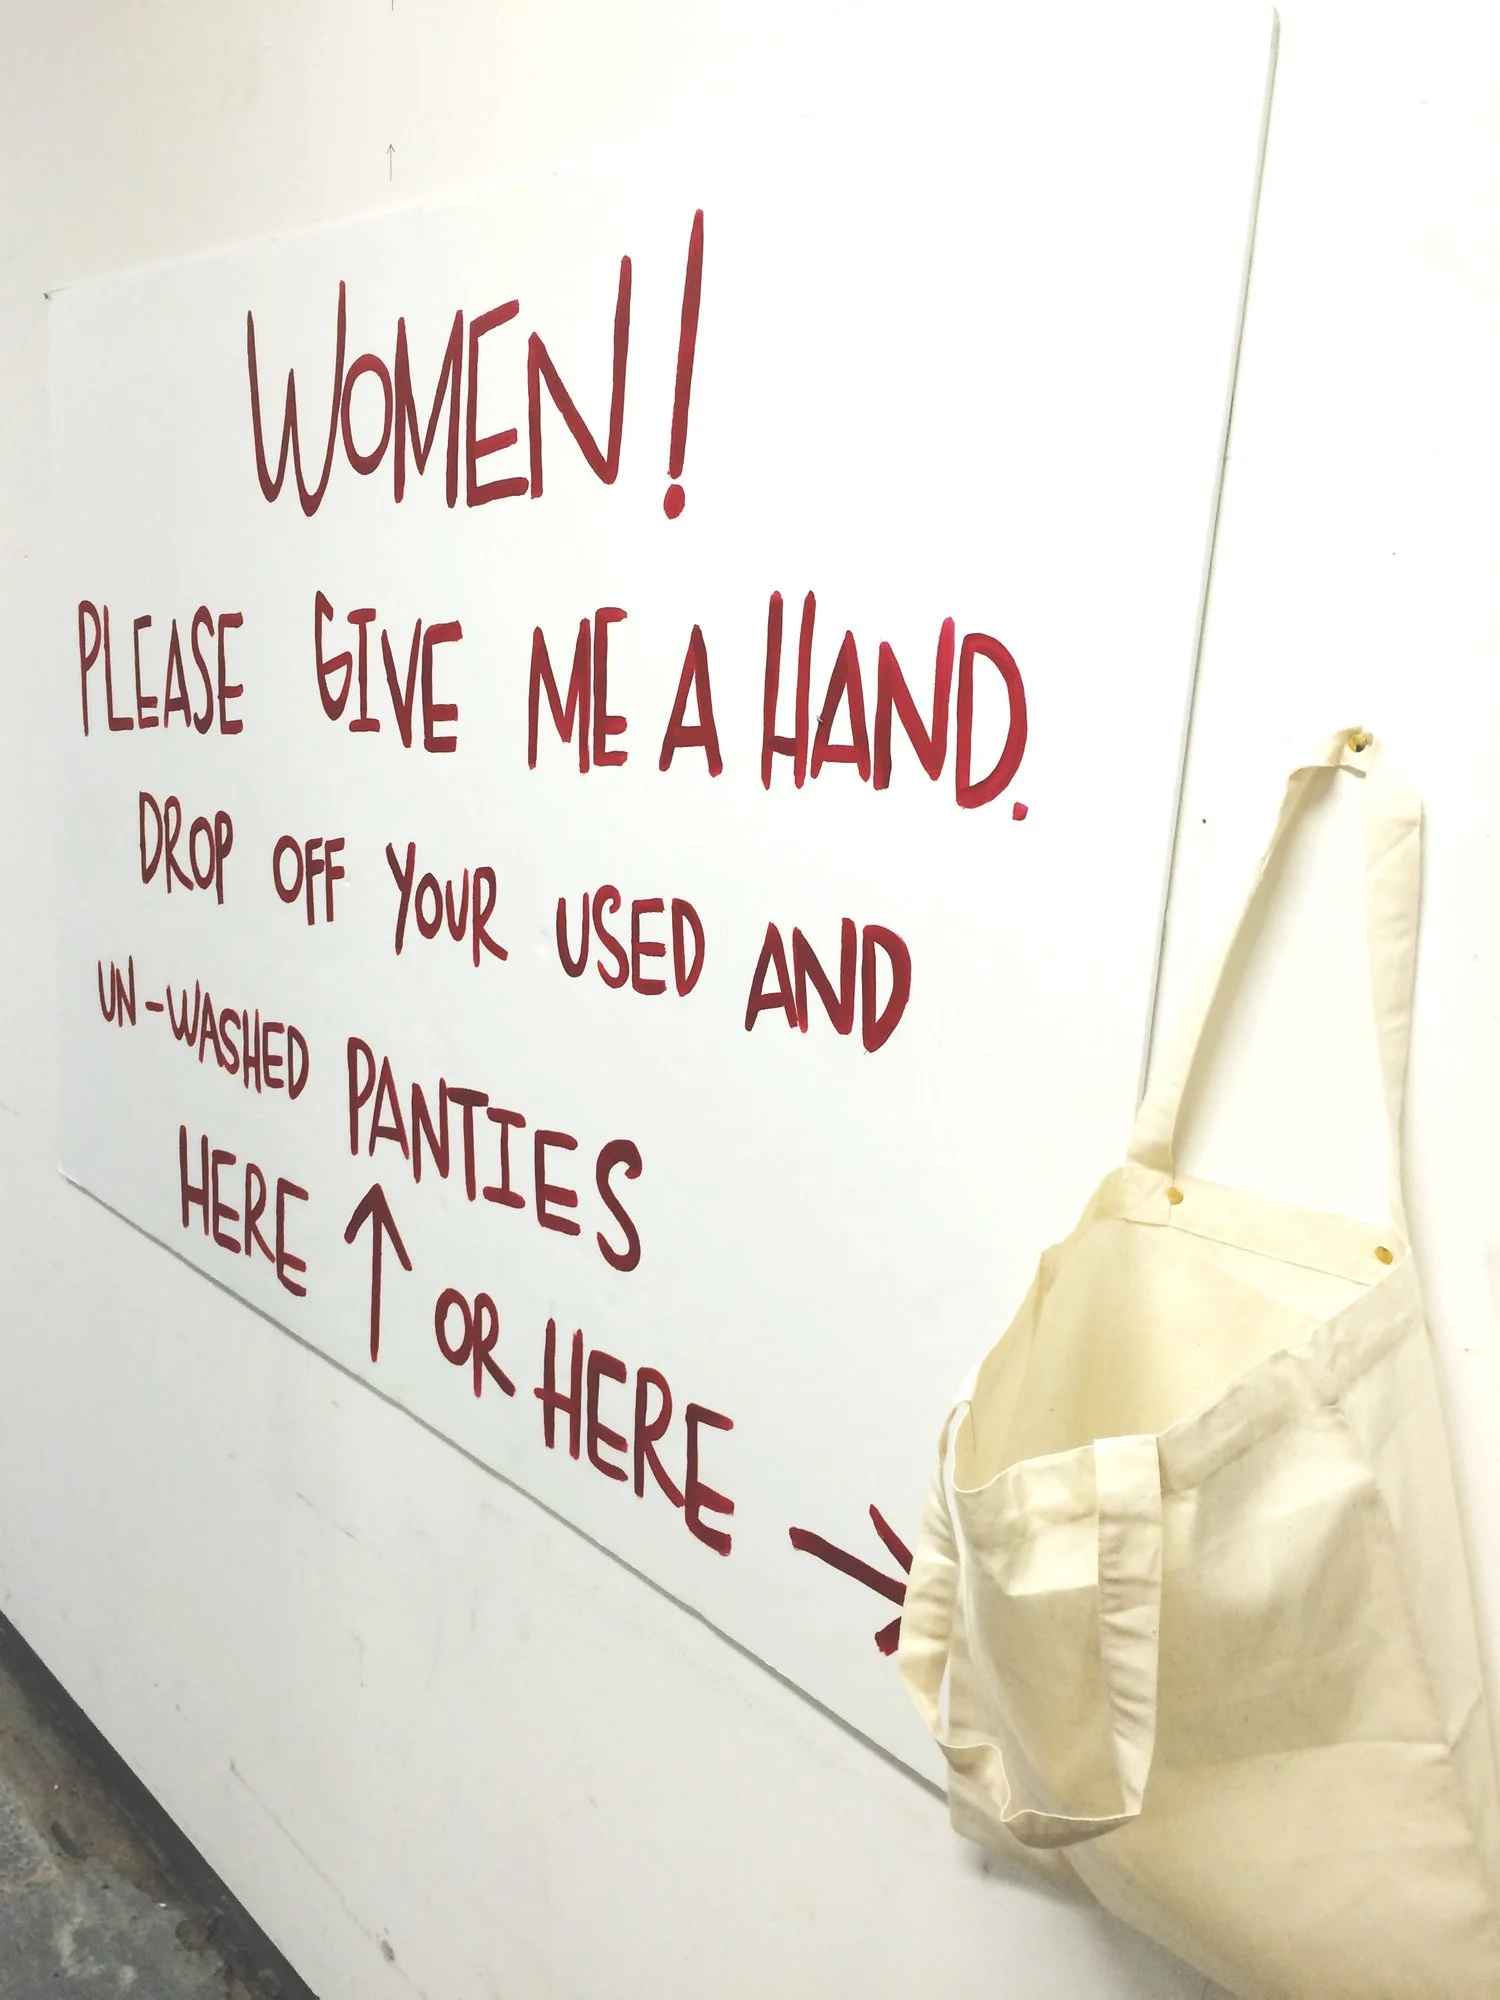 WOMEN!
PLEASE GIVE ME A HAND.
DROP OFF YOUR USED AND
UN-WASHED PANTIES
HERE ↑ OR HERE →